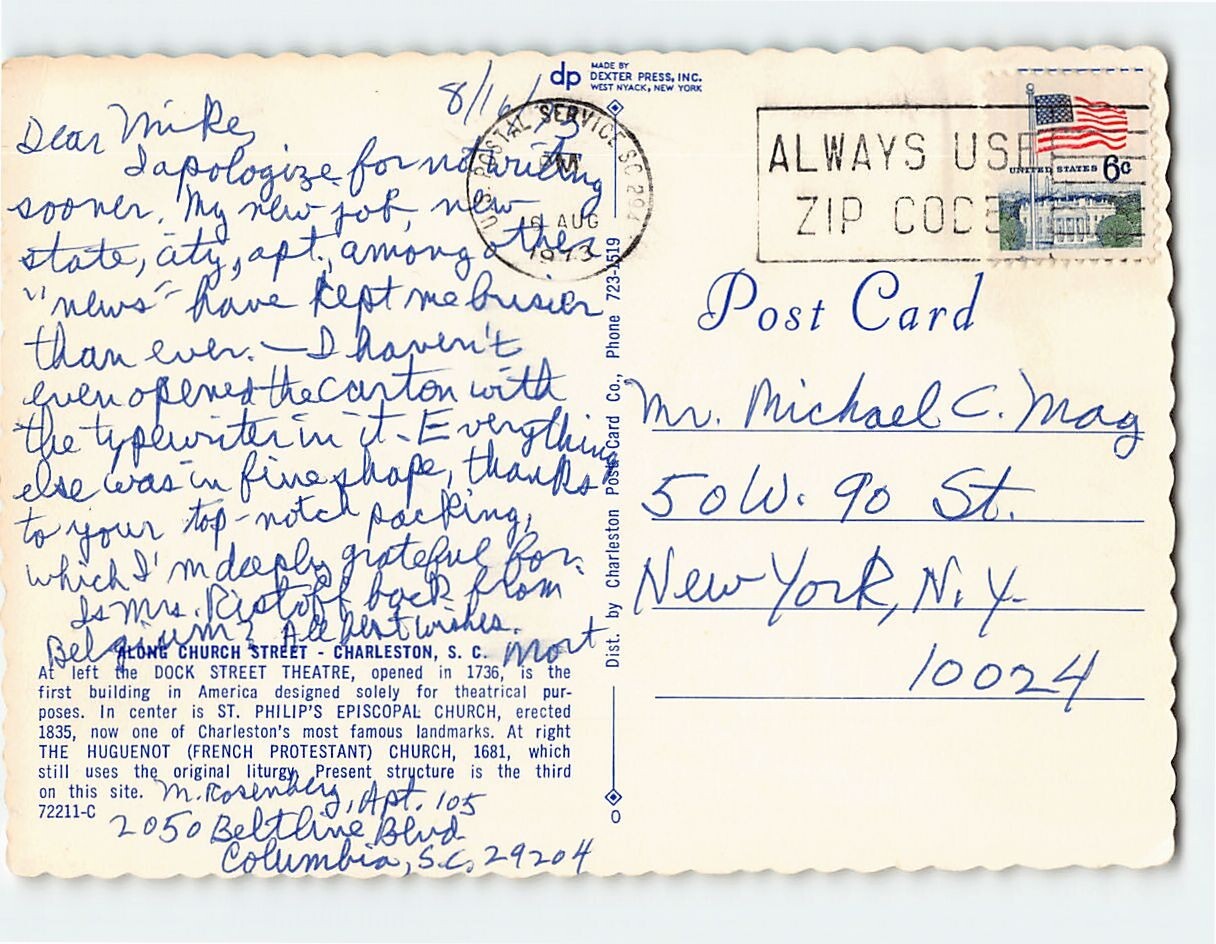 8/16/73
Dear Mike,
I apologize for not writing
sooner. My new job, new
state, city, apt., among other
"news" have kept me busier
than ever. — I haven't
even opened the carton with
the typewriter in it. Everything
else was in fine shape, thanks
to your top-notch packing,
which I'm deeply grateful for.
Is Mrs. Ristoff back from
Belgium? All best wishes.
Mort
ALONG CHURCH STREET - CHARLESTON, S. C.
At left the DOCK STREET THEATRE, opened in 1736, is the
first building in America designed solely for theatrical pur-
poses. In center is ST. PHILIP'S EPISCOPAL CHURCH, erected
1835, now one of Charleston's most famous landmarks. At right
THE HUGUENOT (FRENCH PROTESTANT) CHURCH, 1681, which
still uses the original liturgy. Present structure is the third
on this site.
72211-C
M. Rosenberg, Apt. 105
2050 Beltline Blvd
Columbia, S.C. 29204
dp
MADE BY
DEXTER PRESS, INC.
WEST NYACK, NEW YORK
Dist. by Charleston Post Card Co., Phone 723-1519
U.S. POSTAL SERVICE SC 294
PM
16 AUG
1973
ALWAYS USE
ZIP CODE
UNITED STATES 6c
Post Card
Mr. Michael C. Mag
50 W. 90 St.
New York, N.Y.
10024